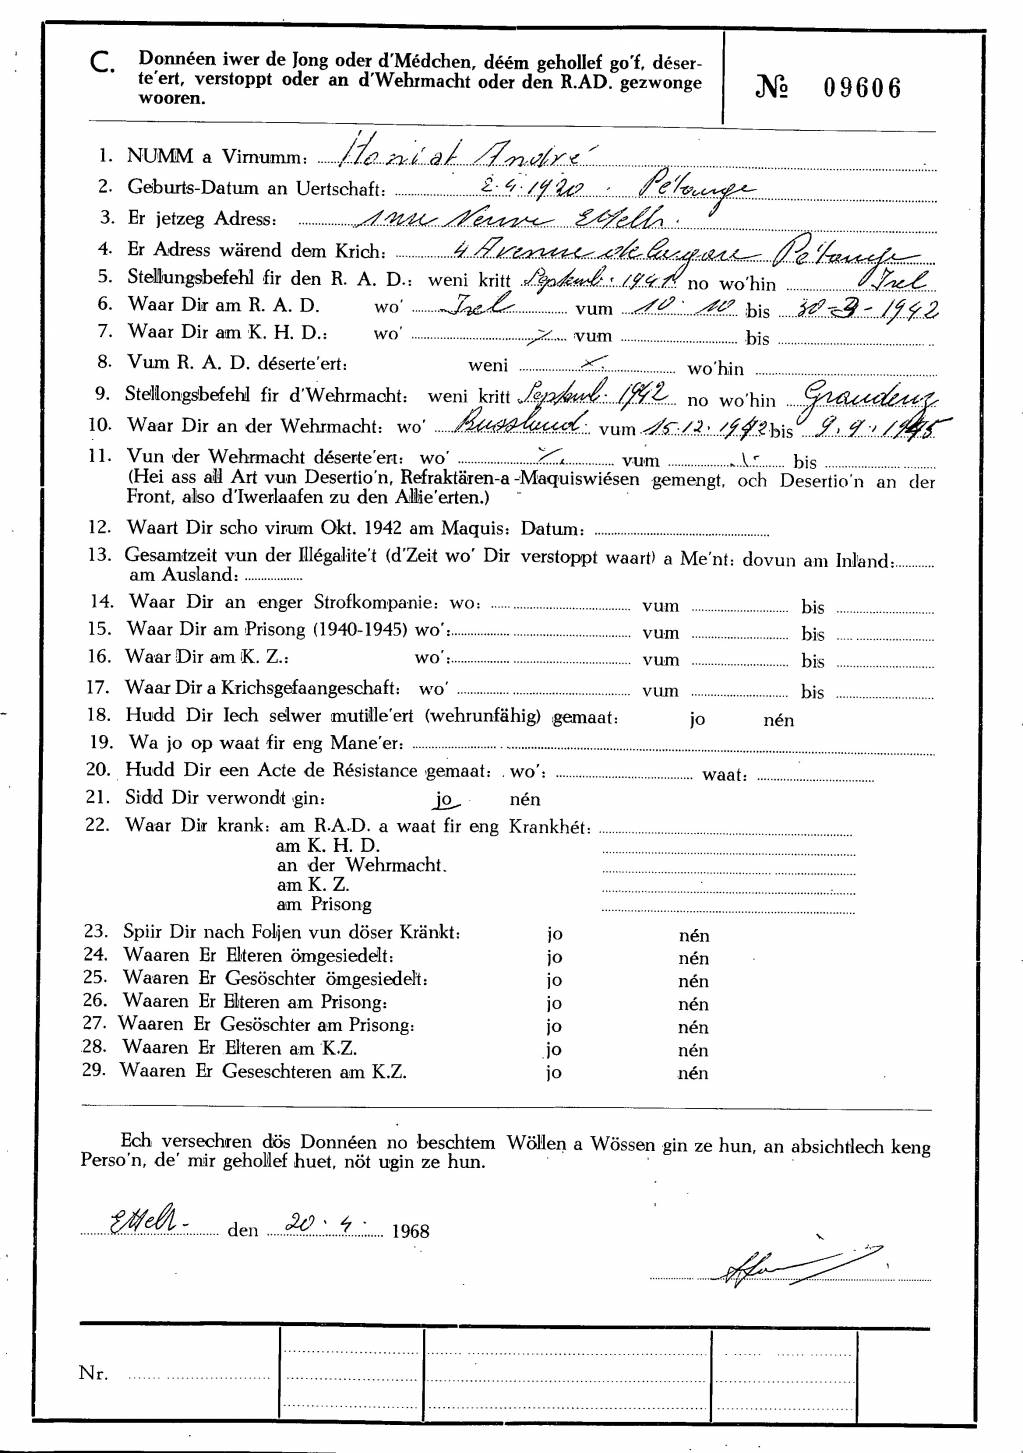 C. Donnéen iwer de Jong oder d'Médchen, déém gehollef go'f, déser-
te'ert, verstoppt oder an d'Wehrmacht oder den R.AD. gezwonge
wooren.
№ 09606
1. NUMM a Virnumm: Honiat André
2. Geburts-Datum an Uertschaft: 2.4.1920. Pétange
3. Er jetzeg Adress: Neuve Ettelb.
4. Er Adress wärend dem Krich: 4 Avenue de la gare Pétange
5. Stellungsbefehl fir den R. A. D.: weni kritt Septemb. 1941. no wo'hin Irel
6. Waar Dir am R. A. D. wo' Irel vum 10. 10 bis 30-3-1942
7. Waar Dir am K. H. D.: wo' vum bis
8. Vum R. A. D. déserte'ert: weni wo'hin
9. Stellongsbefehl fir d'Wehrmacht: weni kritt Septemb. 1942 no wo'hin Graudenz
10. Waar Dir an der Wehrmacht: wo' Russland. vum 15.12.1942 bis 9.9.1945
11. Vun der Wehrmacht déserte'ert: wo' vum bis
(Hei ass all Art vun Desertio'n, Refraktären-a -Maquiswiésen gemengt, och Desertio'n an der
Front, also d'Iwerlaafen zu den Allie'erten.)
12. Waart Dir scho virum Okt. 1942 am Maquis: Datum:
13. Gesamtzeit vun der Illégalite't (d'Zeit wo' Dir verstoppt waart) a Me'nt: dovun am Inland:
am Ausland:
14. Waar Dir an enger Strofkompanie: wo: vum bis
15. Waar Dir am Prisong (1940-1945) wo': vum bis
16. Waar Dir am K. Z.: wo': vum bis
17. Waar Dir a Krichsgefaangeschaft: wo' vum bis
18. Hudd Dir Iech selwer mutille'ert (wehrunfähig) gemaat: jo nén
19. Wa jo op waat fir eng Mane'er:
20. Hudd Dir een Acte de Résistance gemaat: wo': waat:
21. Sidd Dir verwondt gin: jo nén
22. Waar Dir krank: am R.A.D. a waat fir eng Krankhét:
am K. H. D.
an der Wehrmacht.
am K. Z.
am Prisong
23. Spiir Dir nach Foljen vun döser Kränkt: jo nén
24. Waaren Er Elteren ömgesiedelt: jo nén
25. Waaren Er Gesöschter ömgesiedelt: jo nén
26. Waaren Er Elteren am Prisong: jo nén
27. Waaren Er Gesöschter am Prisong: jo nén
28. Waaren Er Elteren am K.Z. jo nén
29. Waaren Er Geseschteren am K.Z. jo nén
Ech versechren dös Donnéen no beschtem Wöllen a Wössen gin ze hun, an absichtlech keng
Perso'n, de' mir gehollef huet, nöt ugin ze hun.
Ettelb- den 20.4. 1968
Nr.